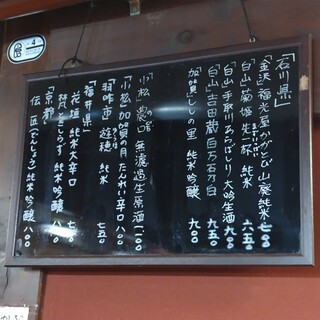 「石川県」
「金沢」福光屋かがとび山廃純米 七〇〇
「白山」菊姫先一杯 純米 六五〇
「白山」手取川あらばしり大吟生酒 九〇〇
「白山」吉田蔵 百万石乃白 九五〇
「加賀」ししの里 純米吟醸 九〇〇
「小松」農口 無濾過生原酒 一二〇〇
「小松」加賀の月 たんれい辛口 八〇〇
「羽咋市」遊穂 純米 七五〇
「福井県」
花垣 純米大辛口
梵 ときしらず 純米吟醸 八〇〇
「京都」
伝匠(でんしょう)純米吟醸 八〇〇
4